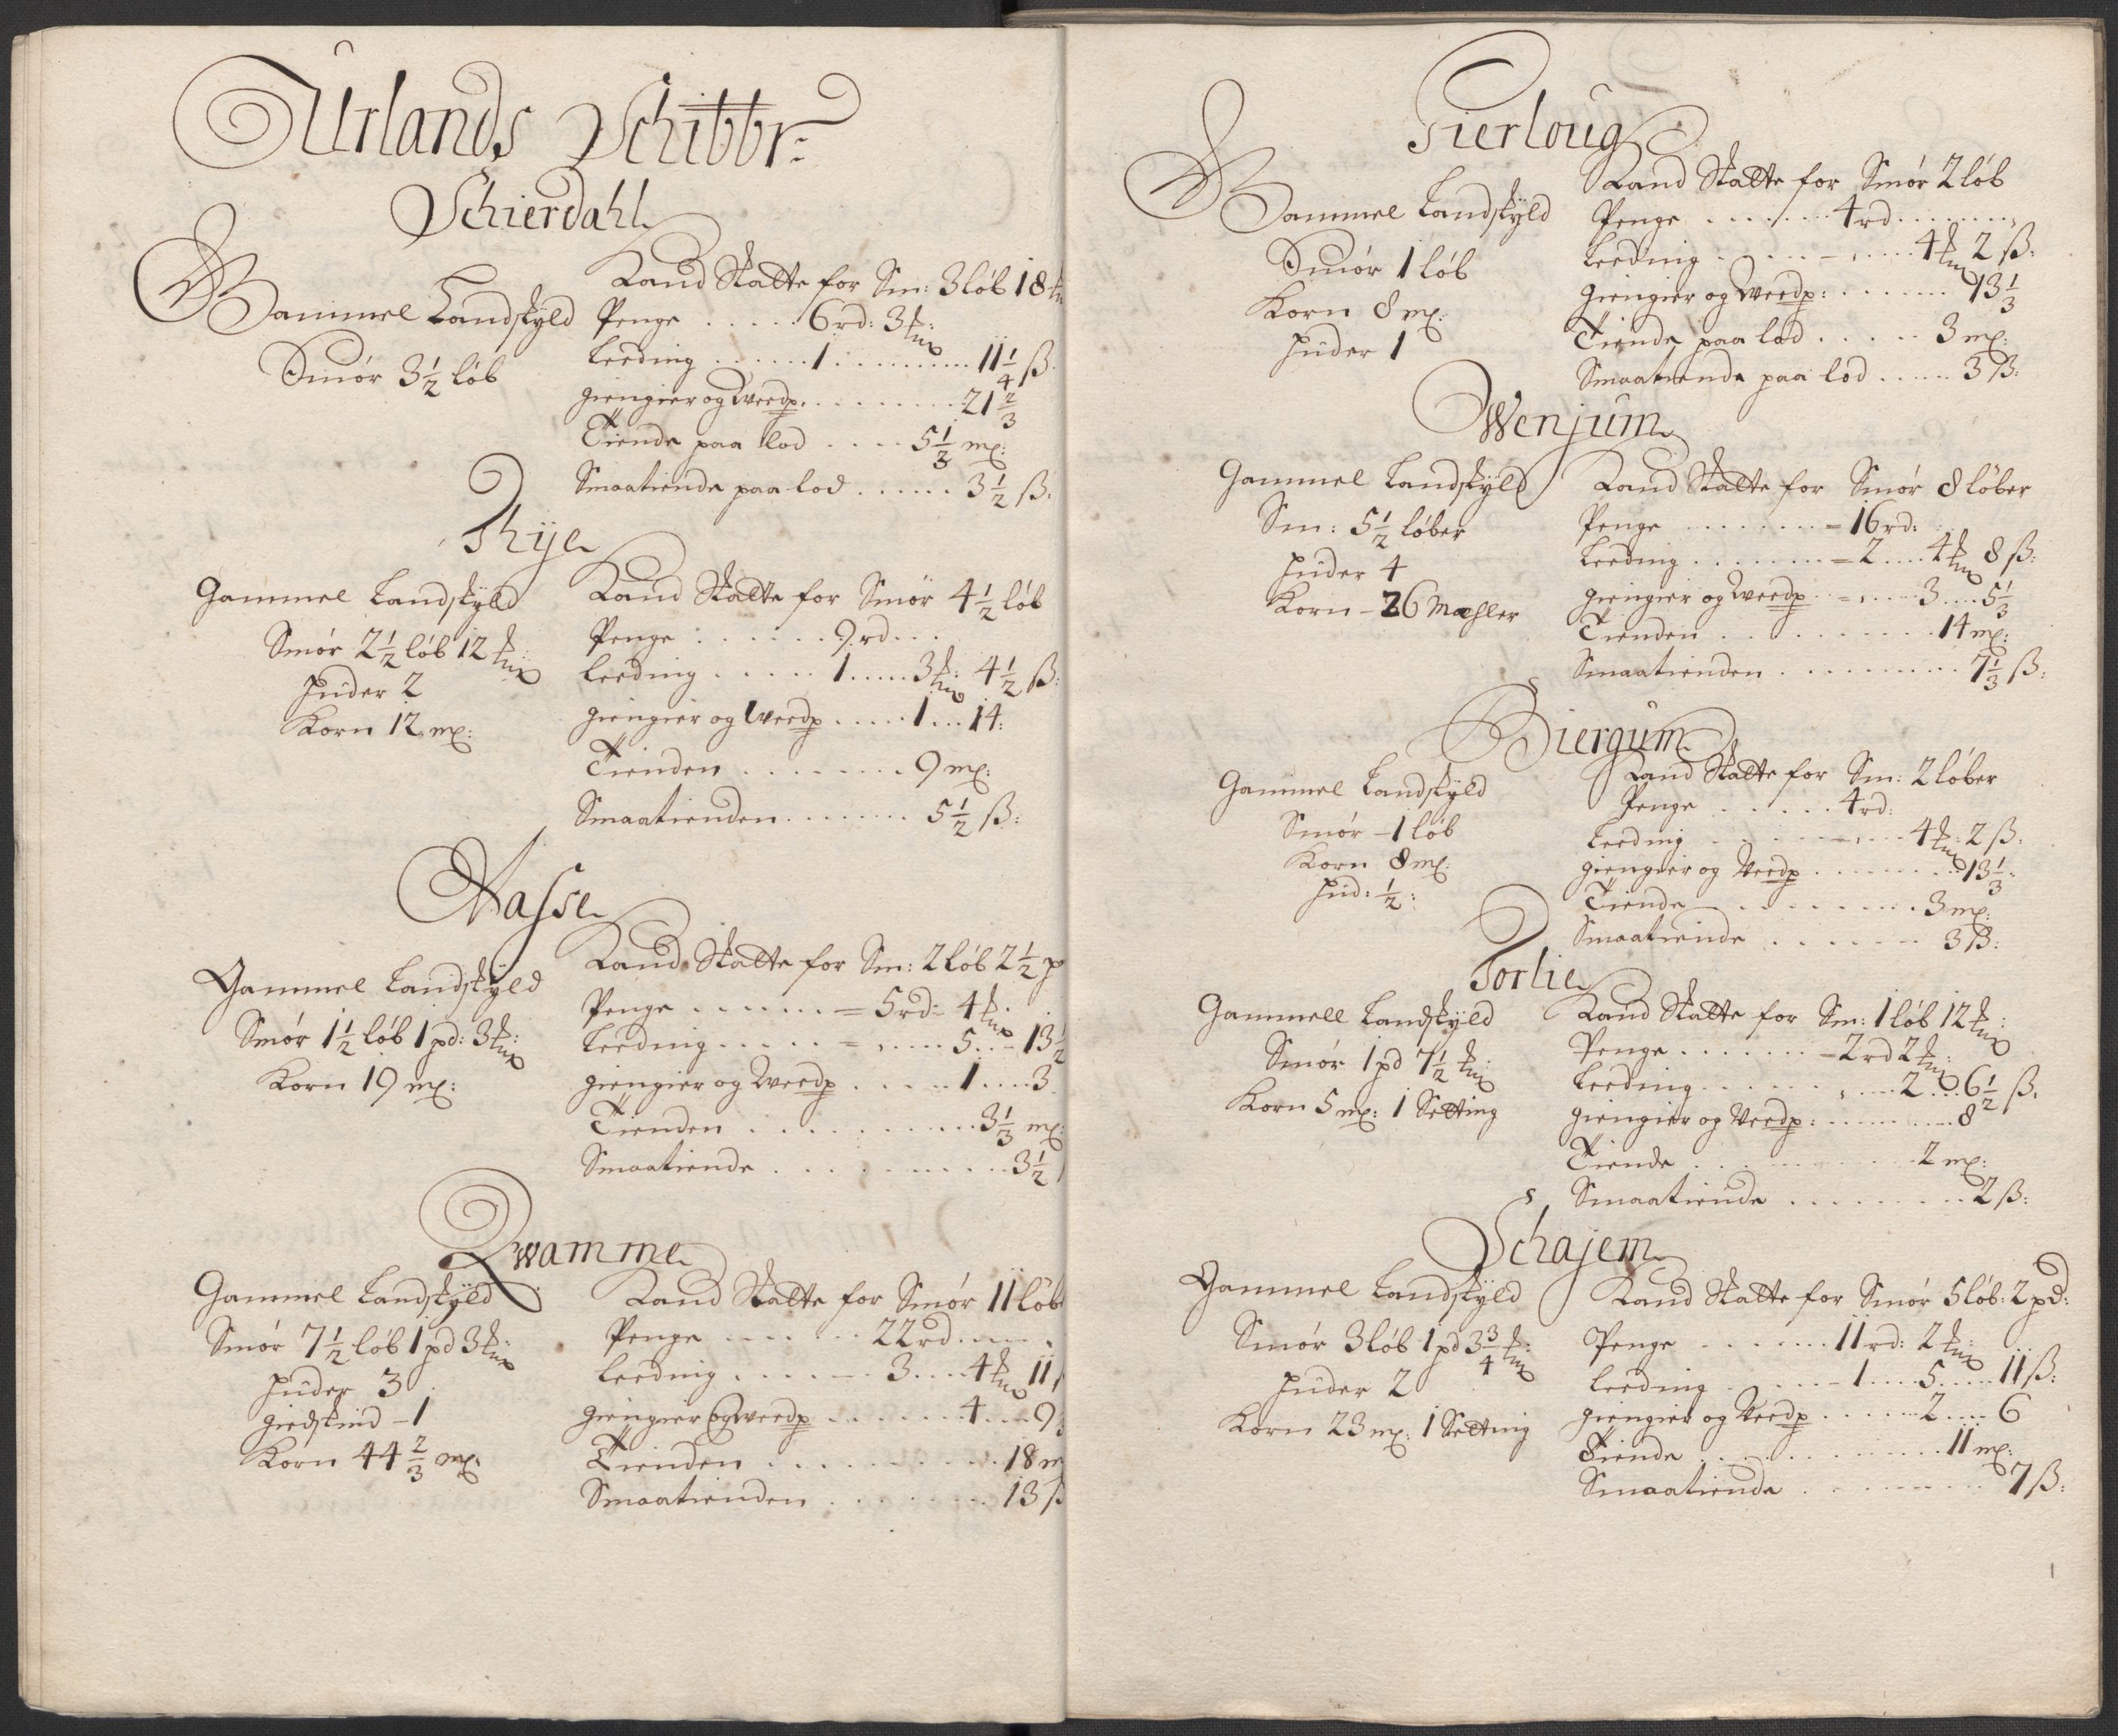 Urlands Schibbr:
Schierdahl
Gammel Landskyld
Smör 3 1/2 löb
Land Skatte for Sm: 3 löb 18
Penge ..... 6 rd: 3
Leeding ...... 1 ......... 11 1/4 ß.
giengier og Weedp. ......... 21 2/3
Tiende paa lod .... 5 1/3 mp:
Smaatiende paa lod ...... 3 1/2 ß:
Thye
Gammel Landskyld
Smör 2 1/2 löb 12
Huder 2
Korn 12 mp:
Land Skatte for Smör 4 1/2 löb
Penge ...... 9 rd...
Leeding ..... 1 ..... 3 4 1/2 ß:
giengier og Weedp ..... 1 ... 14:
Tienden ........ 9 mp:
Smaatienden ....... 5 1/2 ß:
Aasse
Gammel Landskyld
Smör 1 1/2 löb 1 pd: 3
Korn 19 mp:
Land Skatte for Sm: 2 löb 2 1/2 p
Penge ...... = 5 rd: 4
Leeding ..... = , .... 5 ... 13 1/2
giengier og Weedp ..... 1 .... 3
Tienden ........... 3 1/3 mp:
Smaatiende .......... 3 1/2
Qwamme
Gammel Landskyld
Smör 7 1/2 löb 1 pd 3
Huder 3
giedskind - 1
Korn 44 2/3 mp.
Land Skatte for Smör 11 löb
Penge ....... 22 rd.....
Leeding ...... 3 .... 4 11
giengier og weedp ...... 4 ... 9
Tienden .......... 18 m
Smaatienden ....... 13 ß
Tierloug
Gammel Landskyld
Smör 1 löb
Korn 8 mp:
Huder 1
Land Skatte for Smör 2 löb
Penge ....... 4 rd........
Leeding ..... - , .... 4 2 ß:
giengier og Weedp: ....... 13 1/3
Tiende paa lod ..... 3 mp:
Smaatiende paa lod ..... 3 ß:
Wenjum
Gammel Landskyld
Sm: 5 1/2 löber
Huder 4
Korn - 26 Mæhler
Land Skatte for Smör 8 löber
Penge ....... = 16 rd:
Leeding ....... = 2 .... 4 8 ß:
giengier og Weedp .. = , .... 3 .... 5 1/3
Tienden ......... 14 mp:
Smaatienden ......... 7 1/3 ß:
Biergum
Gammel Landskyld
Smör - 1 löb
Korn 8 mp:
Hud: 1/2:
Land Skatte for Sm: 2 löber
Penge ...... 4 rd:
Leeding ...... - , .... 4 2 ß.
giengier og Weedp ........ 13 1/3
Tiende ......... 3 mp:
Smaatiende ....... 3 ß:
Torlie
Gammell Landskyld
Smör 1 pd 7 1/2
Korn 5 mp: 1 Setting
Land Skatte for Sm: 1 löb 12
Penge ....... - 2 rd 2
Leeding ....... , .... 2 ... 6 1/2 ß.
giengier og Weedp: ........ 8
Tiende ........... 2 mp:
Smaatiende ......... 2 ß:
Schajem
Gammel Landskyld
Smör 3 löb 1 pd 3 3/4
Huder 2
Korn 23 mp: 1 Setting
Land Skatte for Smör 5 löb: 2 pd:
Penge ....... 11 rd: 2
Leeding ....... 1 .... 5 .... 11 ß:
giengier og Weedp ...... 2 .... 6
Tiende .......... 11 mp:
Smaatiende ........ 7 ß: